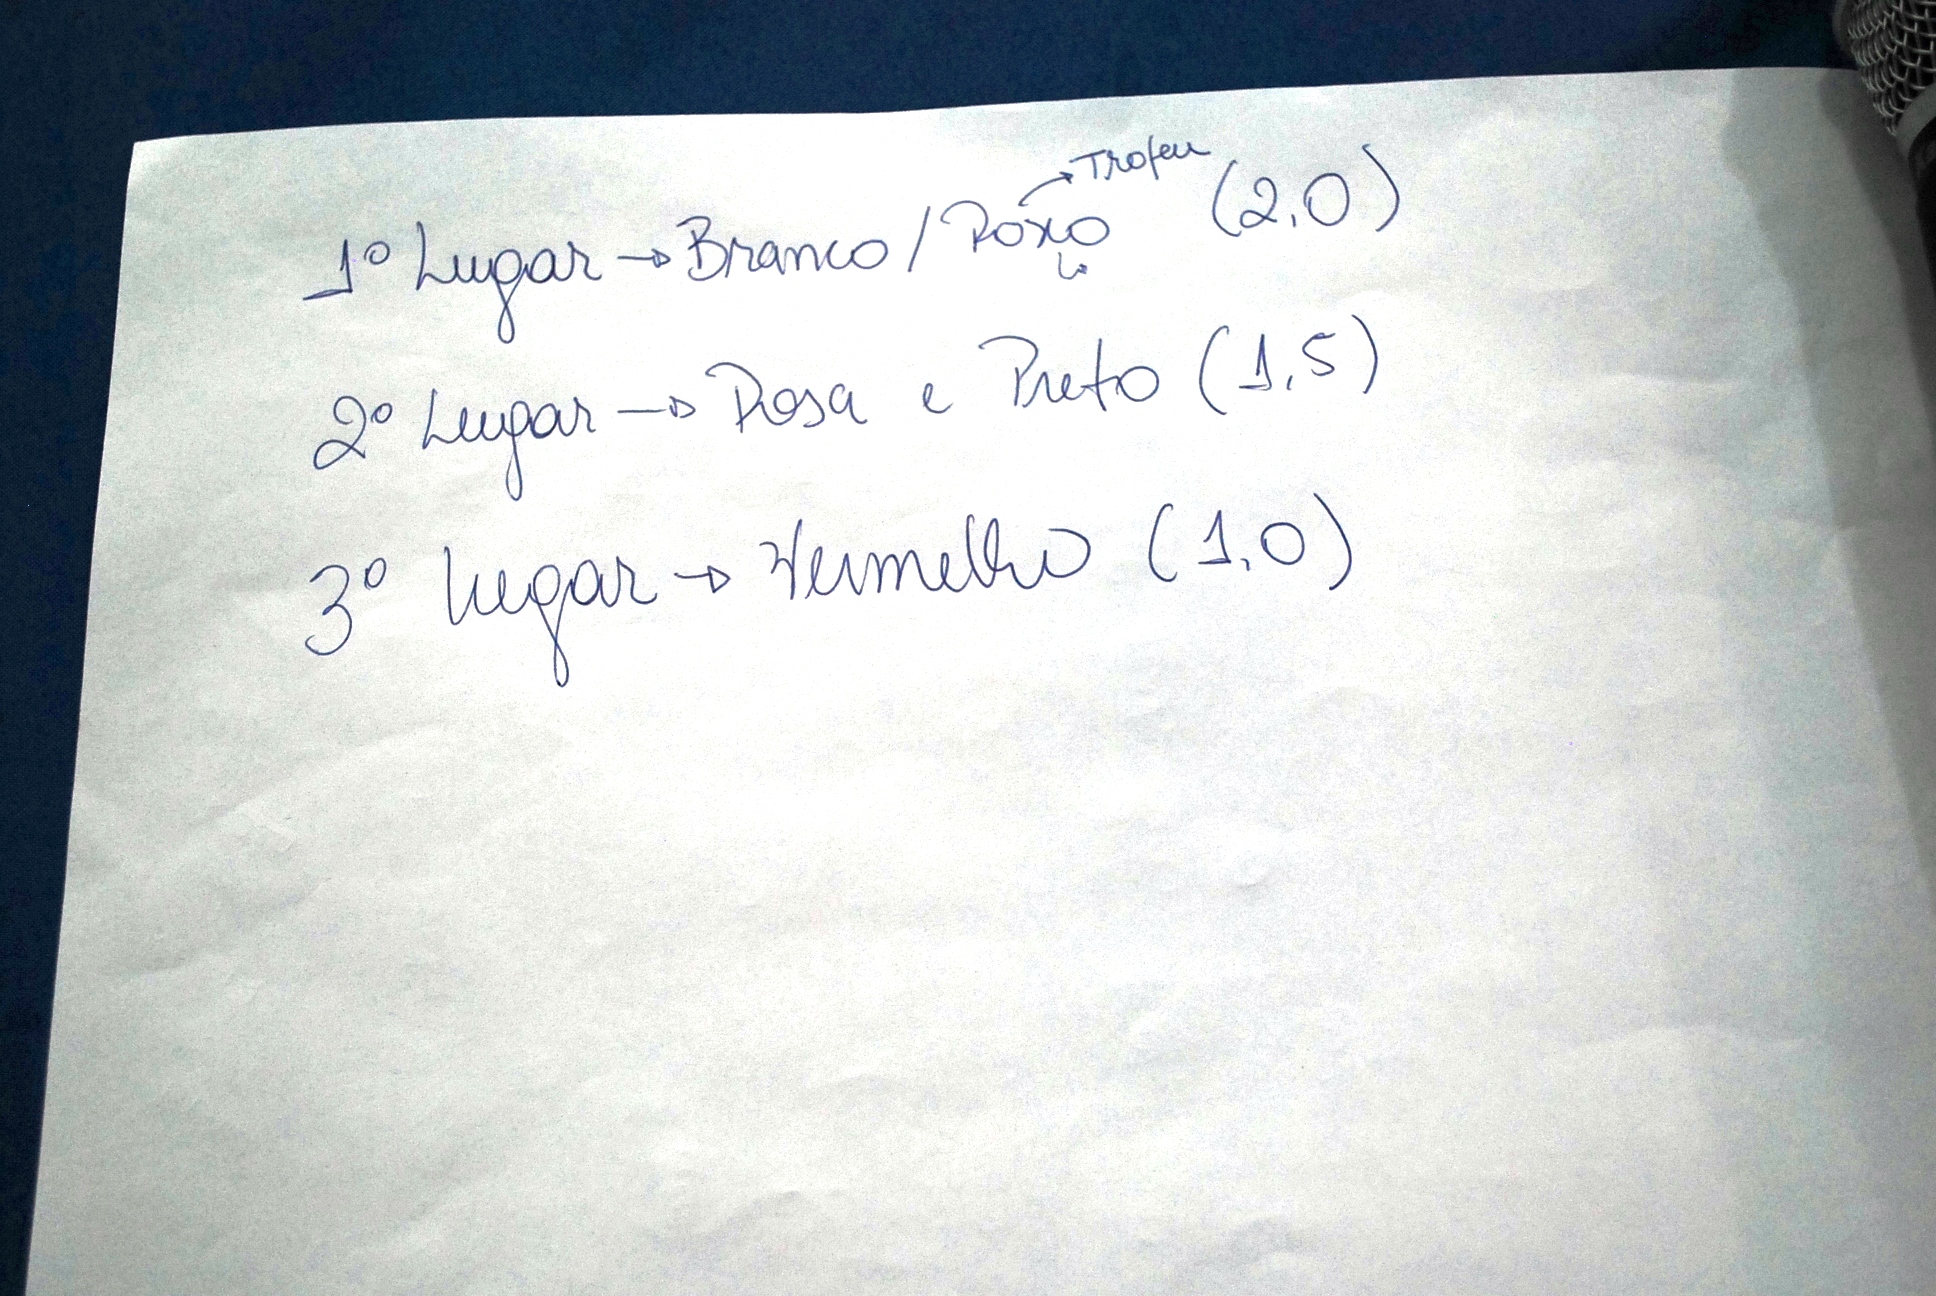 1º Lugar → Branco / Roxo → Trofeu (2,0)
2º Lugar → Rosa e Preto (1,5)
3º lugar → Vermelho (1,0)